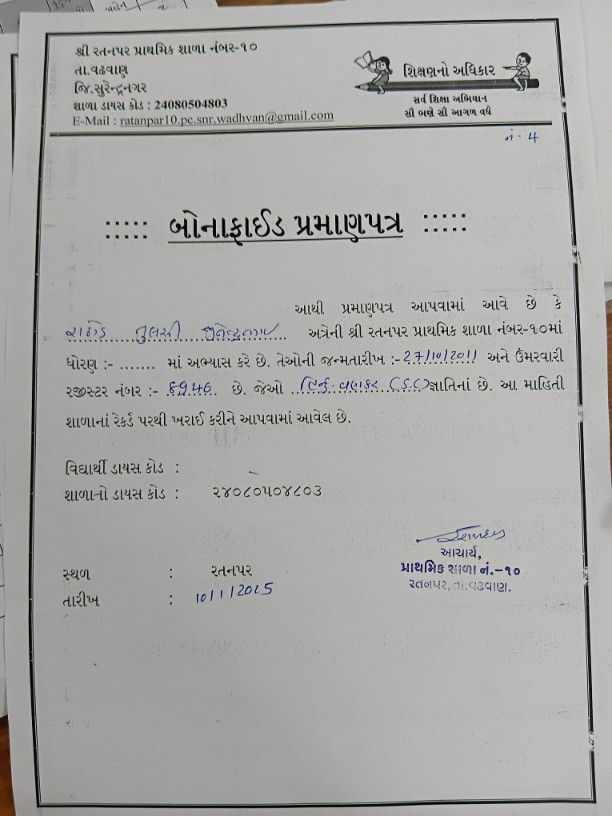 શ્રી રતનપર પ્રાથમિક શાળા નંબર-૧૦
તા.વઢવાણ
જિ.સુરેન્દ્રનગર
શાળા ડાયસ કોડ : 24080504803
E-Mail : ratanpar10.pc.snr.wadhvan@gmail.com
શિક્ષણનો અધિકાર
સર્વ શિક્ષા અભિયાન
સૌ ભણે સૌ આગળ વધે
નં. 4
::::: બોનાફાઈડ પ્રમાણપત્ર :::::
આથી પ્રમાણપત્ર આપવામાં આવે છે કે
રાઠોડ તુલસી જીતેન્દ્રભાઇ અત્રેની શ્રી રતનપર પ્રાથમિક શાળા નંબર-૧૦માં
ધોરણ :- ....... માં અભ્યાસ કરે છે. તેઓની જન્મતારીખ :- 27/10/2011 અને ઉંમરવારી
રજીસ્ટર નંબર :- છે. જેઓ હિન્દુ વણકર (S.C) જ્ઞાતિનાં છે. આ માહિતી
શાળાનાં રેકર્ડ પરથી ખરાઈ કરીને આપવામાં આવેલ છે.
વિદ્યાર્થી ડાયસ કોડ : -
શાળાનો ડાયસ કોડ : ૨૪૦૮૦૫૦૪૮૦૩
આચાર્ય,
પ્રાથમિક શાળા નં.-૧૦
રતનપર, તા.વઢવાણ.
સ્થળ : રતનપર
તારીખ : 10/1/2025